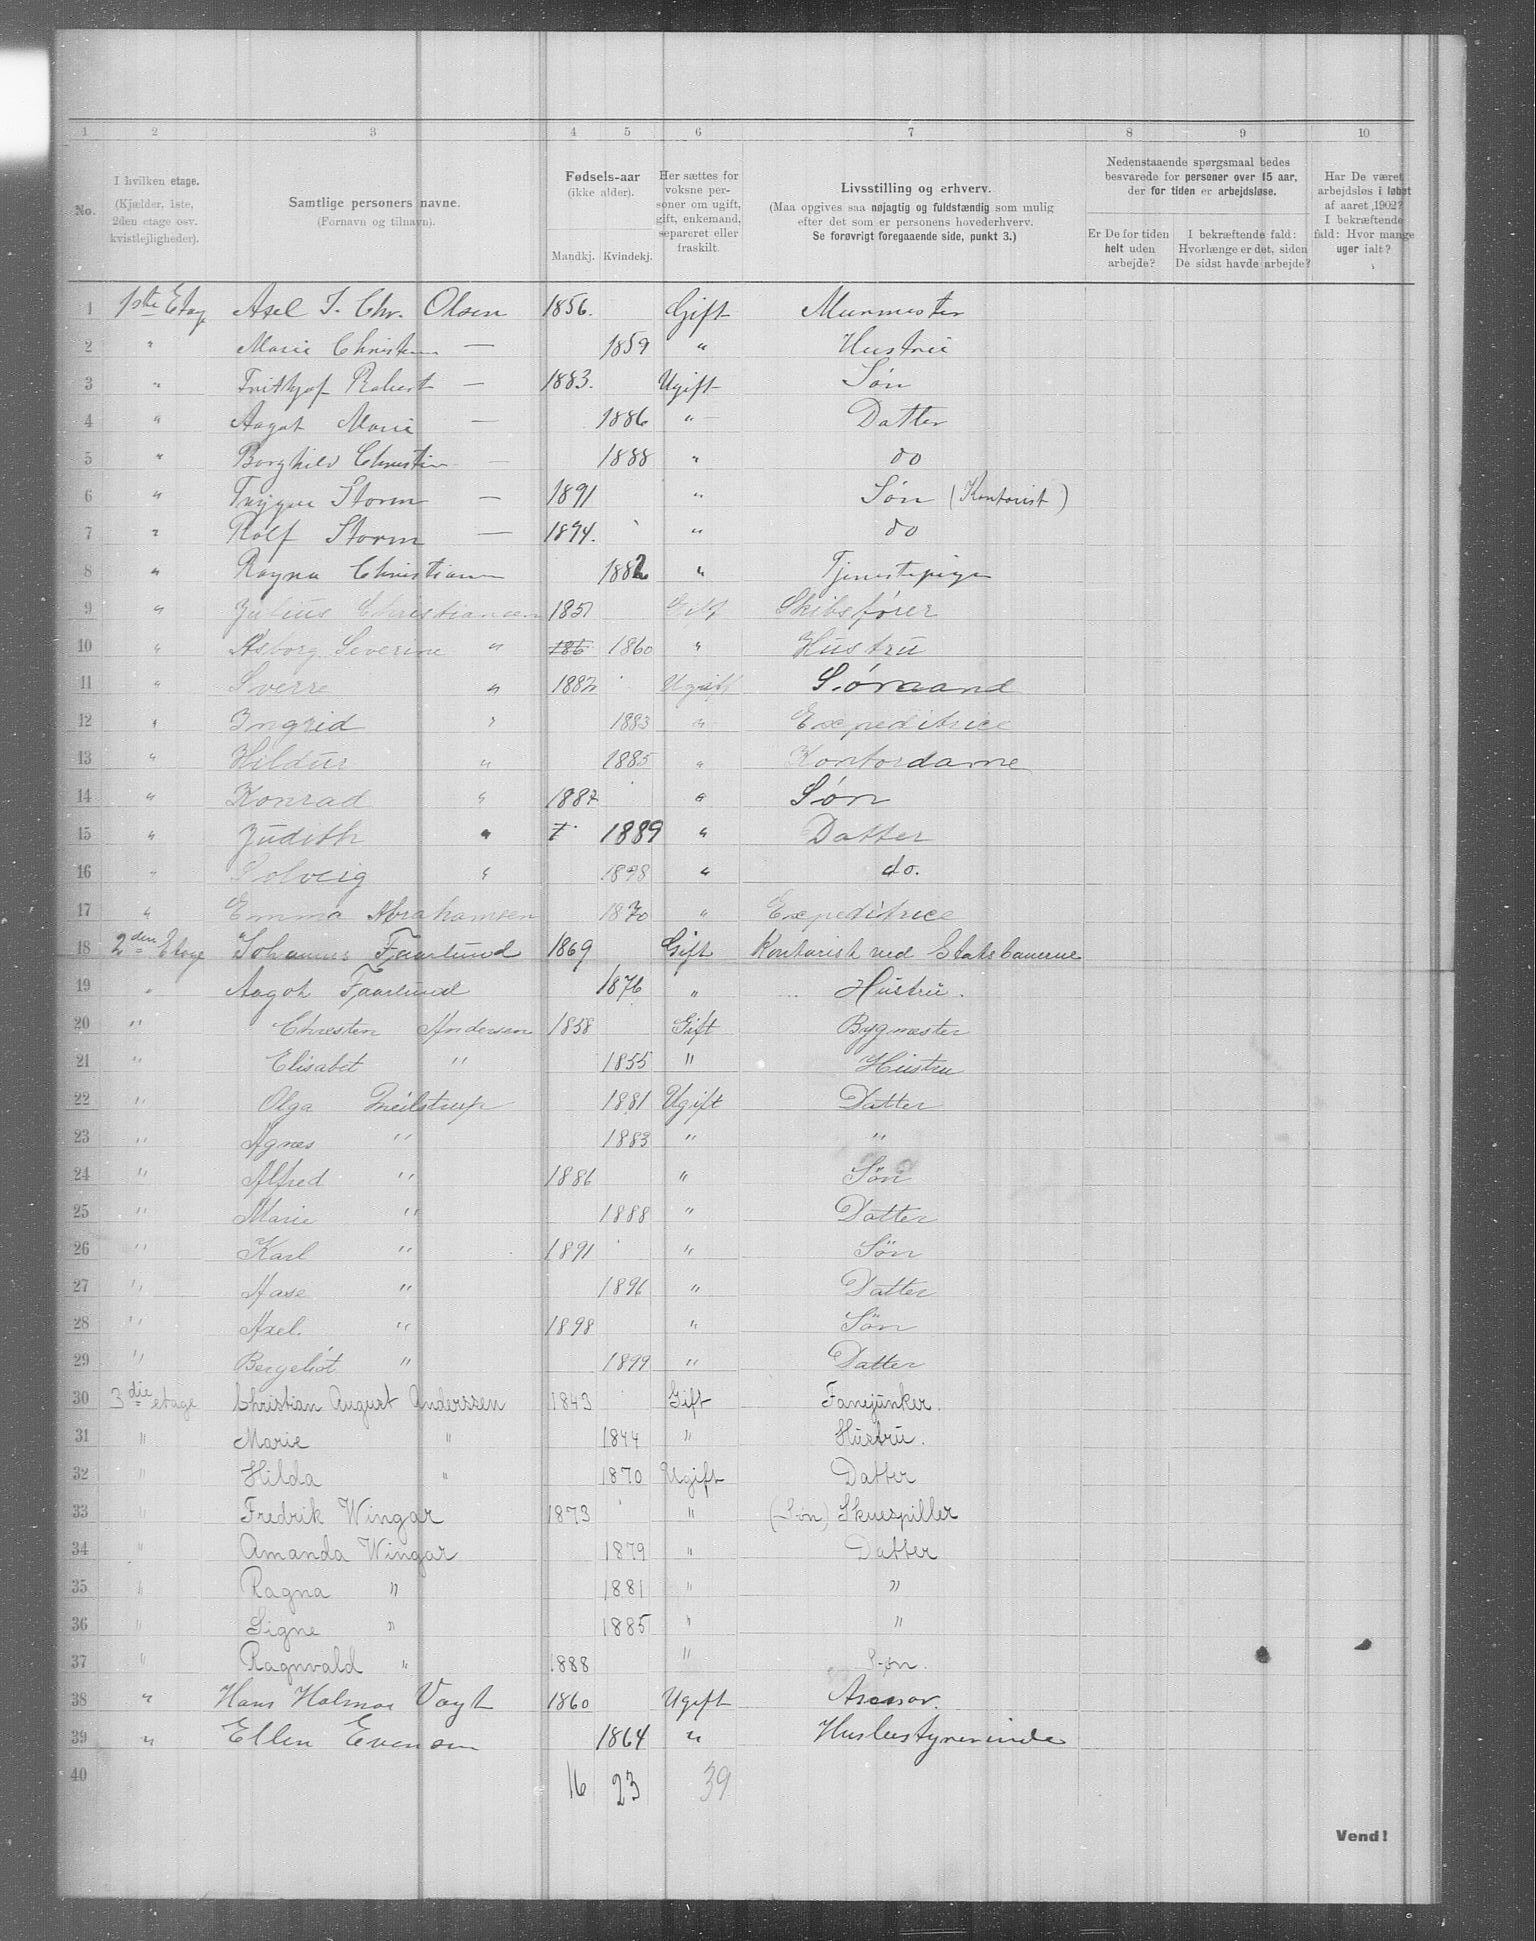 1 2 3 4 5 6 7 8 9 10
No. I hvilken etage. (Kjælder, 1ste, 2den etage osv. kvistlejligheder). Samtlige personers navne. (Fornavn og tilnavn). Fødsels-aar (ikke alder). Mandkj. Kvindekj. Her sættes for voksne personer om ugift, gift, enkemand, separeret eller fraskilt. Livsstilling og erhverv. (Maa opgives saa nøjagtig og fuldstændig som mulig efter det som er personens hovederhverv. Se forøvrigt foregaaende side, punkt 3.) Nedenstaaende spørgsmaal bedes besvarede for personer over 15 aar, der for tiden er arbejdsløse. Er De for tiden helt uden arbejde? I bekræftende fald: Hvorlænge er det, siden De sidst havde arbejde? Har De været arbejdsløs i løbet af aaret 1902? I bekræftende fald: Hvor mange uger ialt?
1 1ste Etag Axel J. Chr. Olsen 1856. Gift Murmester
2 " Marie Christin — 1859 " Hustrue
3 " Frithjof Robert — 1883. Ugift Søn
4 " Aagot Marie — 1886 " Datter
5 " Borghild Christin — 1888 " do
6 " Trygve Storm — 1891 " Søn (Kontorist)
7 " Rolf Storm — 1894. " do
8 " Ragna Christiansen 1882 " Tjenestepige
9 " Julius Christiansen 1851 Gift Skibsfører
10 " Asborg Severine " 186 1860 " Hustru
11 " Sverre " 1882 Ugift Sømand
12 " Ingrid " 1883 " Expeditrice
13 " Hildur " 1885 " Kontordame
14 " Konrad " 1887 " Søn
15 " Judith " 1889 " Datter
16 " Solveig " 1898 " do.
17 " Emma Abrahamsen 1870 " Expeditrice
18 2den Etage Johannes Faarlund 1869 Gift Kontorist ved Statsbanerne
19 " Aagot Faarlund 1876 " Hustru.
20 " Chresten Andersen 1858 Gift Bygmester
21 " Elisabet " 1855 " Hustru
22 " Olga Treilstrup 1881 Ugift Datter
23 " Agnes " 1883 " "
24 " Alfred " 1886 " Søn
25 " Marie " 1888 " Datter
26 " Karl " 1891 " Søn
27 " Aase " 1896 " Datter
28 " Axel. " 1898 " Søn
29 " Bergeliot " 1899 " Datter
30 3die etage Christian August Anderssen 1843 Gift Fanejunker.
31 " Marie " 1844 " Hustru.
32 " Hilda " 1870 Ugift Datter
33 " Fredrik Wingar 1873 " (Søn) Skuespiller
34 " Amanda Wingar 1879 " Datter
35 " Ragna " 1881 " "
36 " Signe " 1885 " "
37 " Ragnvald " 1888 " Søn.
38 " Hans Halmar Vogt 1860 Ugift Asessor.
39 " Ellen Evensen 1864 " Husbestyrerinde
40 16 23 39
Vend!